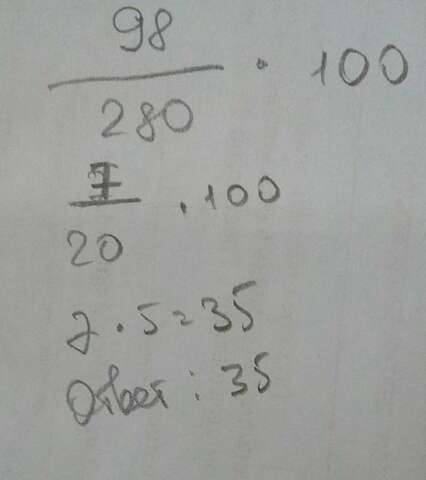 98
280 · 100
7
20 · 100
7 · 5 = 35
Ответ: 35